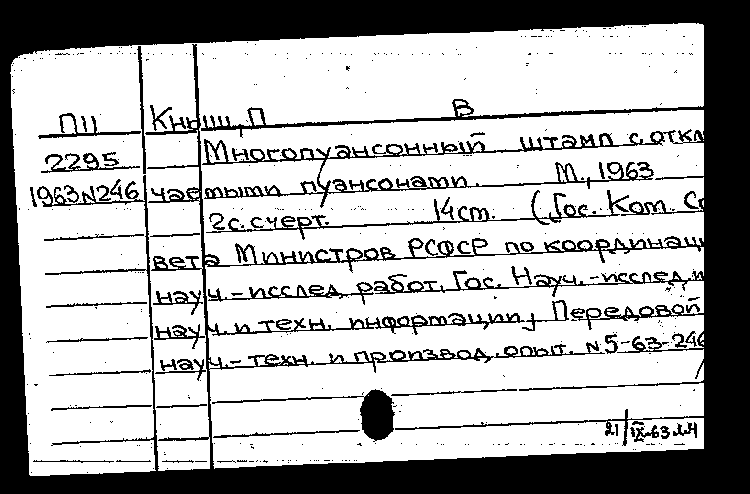 П11 Кныш, П В
2295 Многопуансонный штамп с откл
1963 N246 чаемыми пуансонами. М., 1963
2с. с черт. 14см. (Гос. Ком. Со
вета Министров РСФСР по координац
науч.-исслед. работ. Гос. Науч.-исслед. и
науч. и техн. информации. Передовой
науч.-техн. и производ. опыт. N5-63-246
21/IX-63